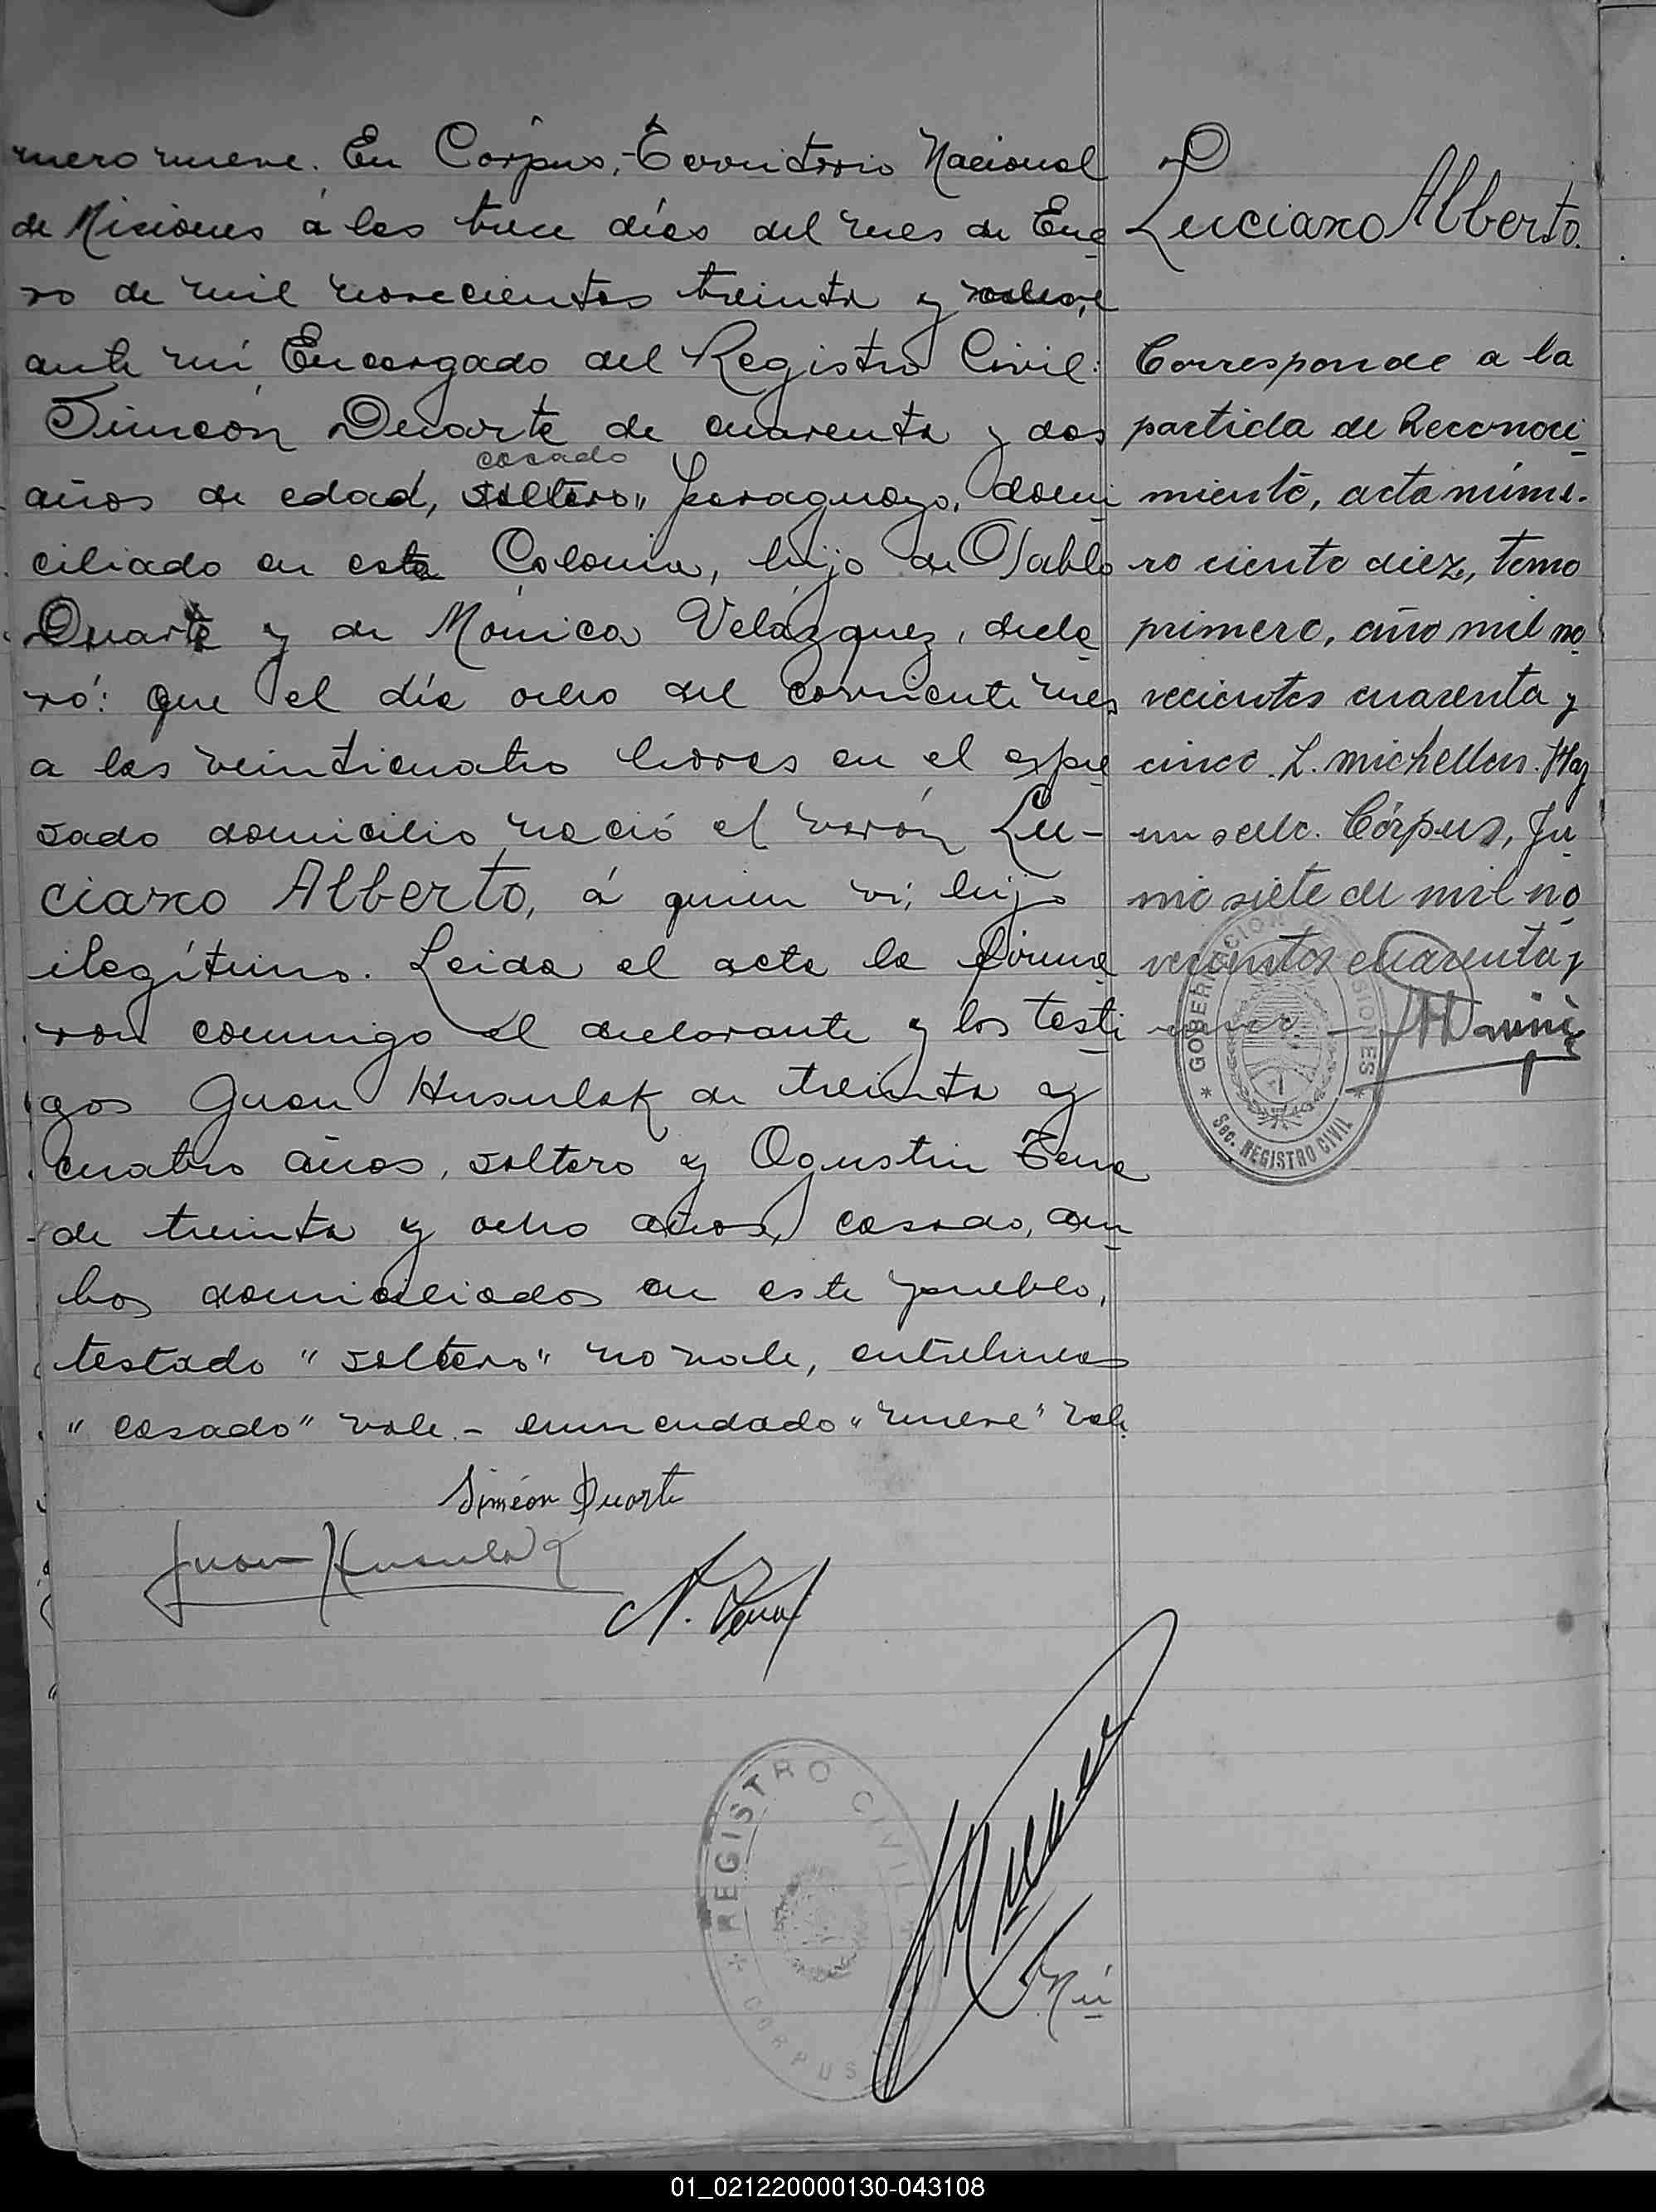 mero nueve. En Córpus, Territorio Nacional
de Misiones á los trece días del mes de Ene
ro de mil novecientos treinta y nueve,
ante mí Encargado del Registro Civil:
Simeón Duarte de cuarenta y dos
casado
años de edad, soltero, paraguayo, domi
ciliado en esta Colonia, hijo de Pablo
Duarte y de Mónica Velázquez, decla
ró: Que el día ocho del corriente mes
a las veinticuatro horas en el expre
sado domicilio nació el varón Lu-
ciano Alberto, á quien vi, hijo
ilegítimo. Leida el acta la firma
ron conmigo el declarante y los testi
gos Juan Husulak de treinta y
cuatro años, soltero y Agustin Tena
de treinta y ocho años, casado, am
bos domiciliados en este pueblo,
testado "soltero" no vale, entrelineas
"casado" vale.- enmendado "nueve" vale
Simeón Duarte
Juan Husulak
A. Tena
REGISTRO CIVIL
* CORPUS
Luciano Alberto.
Corresponde a la
partida de Reconoci
miento, acta núme-
ro ciento diez, tomo
primero, año mil no
vecientos cuarenta y
cinco. L. Michellon. Hay
un sello. Córpus, Ju
nio siete de mil no
vecientos cuarenta y
GOBERNACION MISIONES
* Sec. REGISTRO CIVIL *
01_021220000130-043108